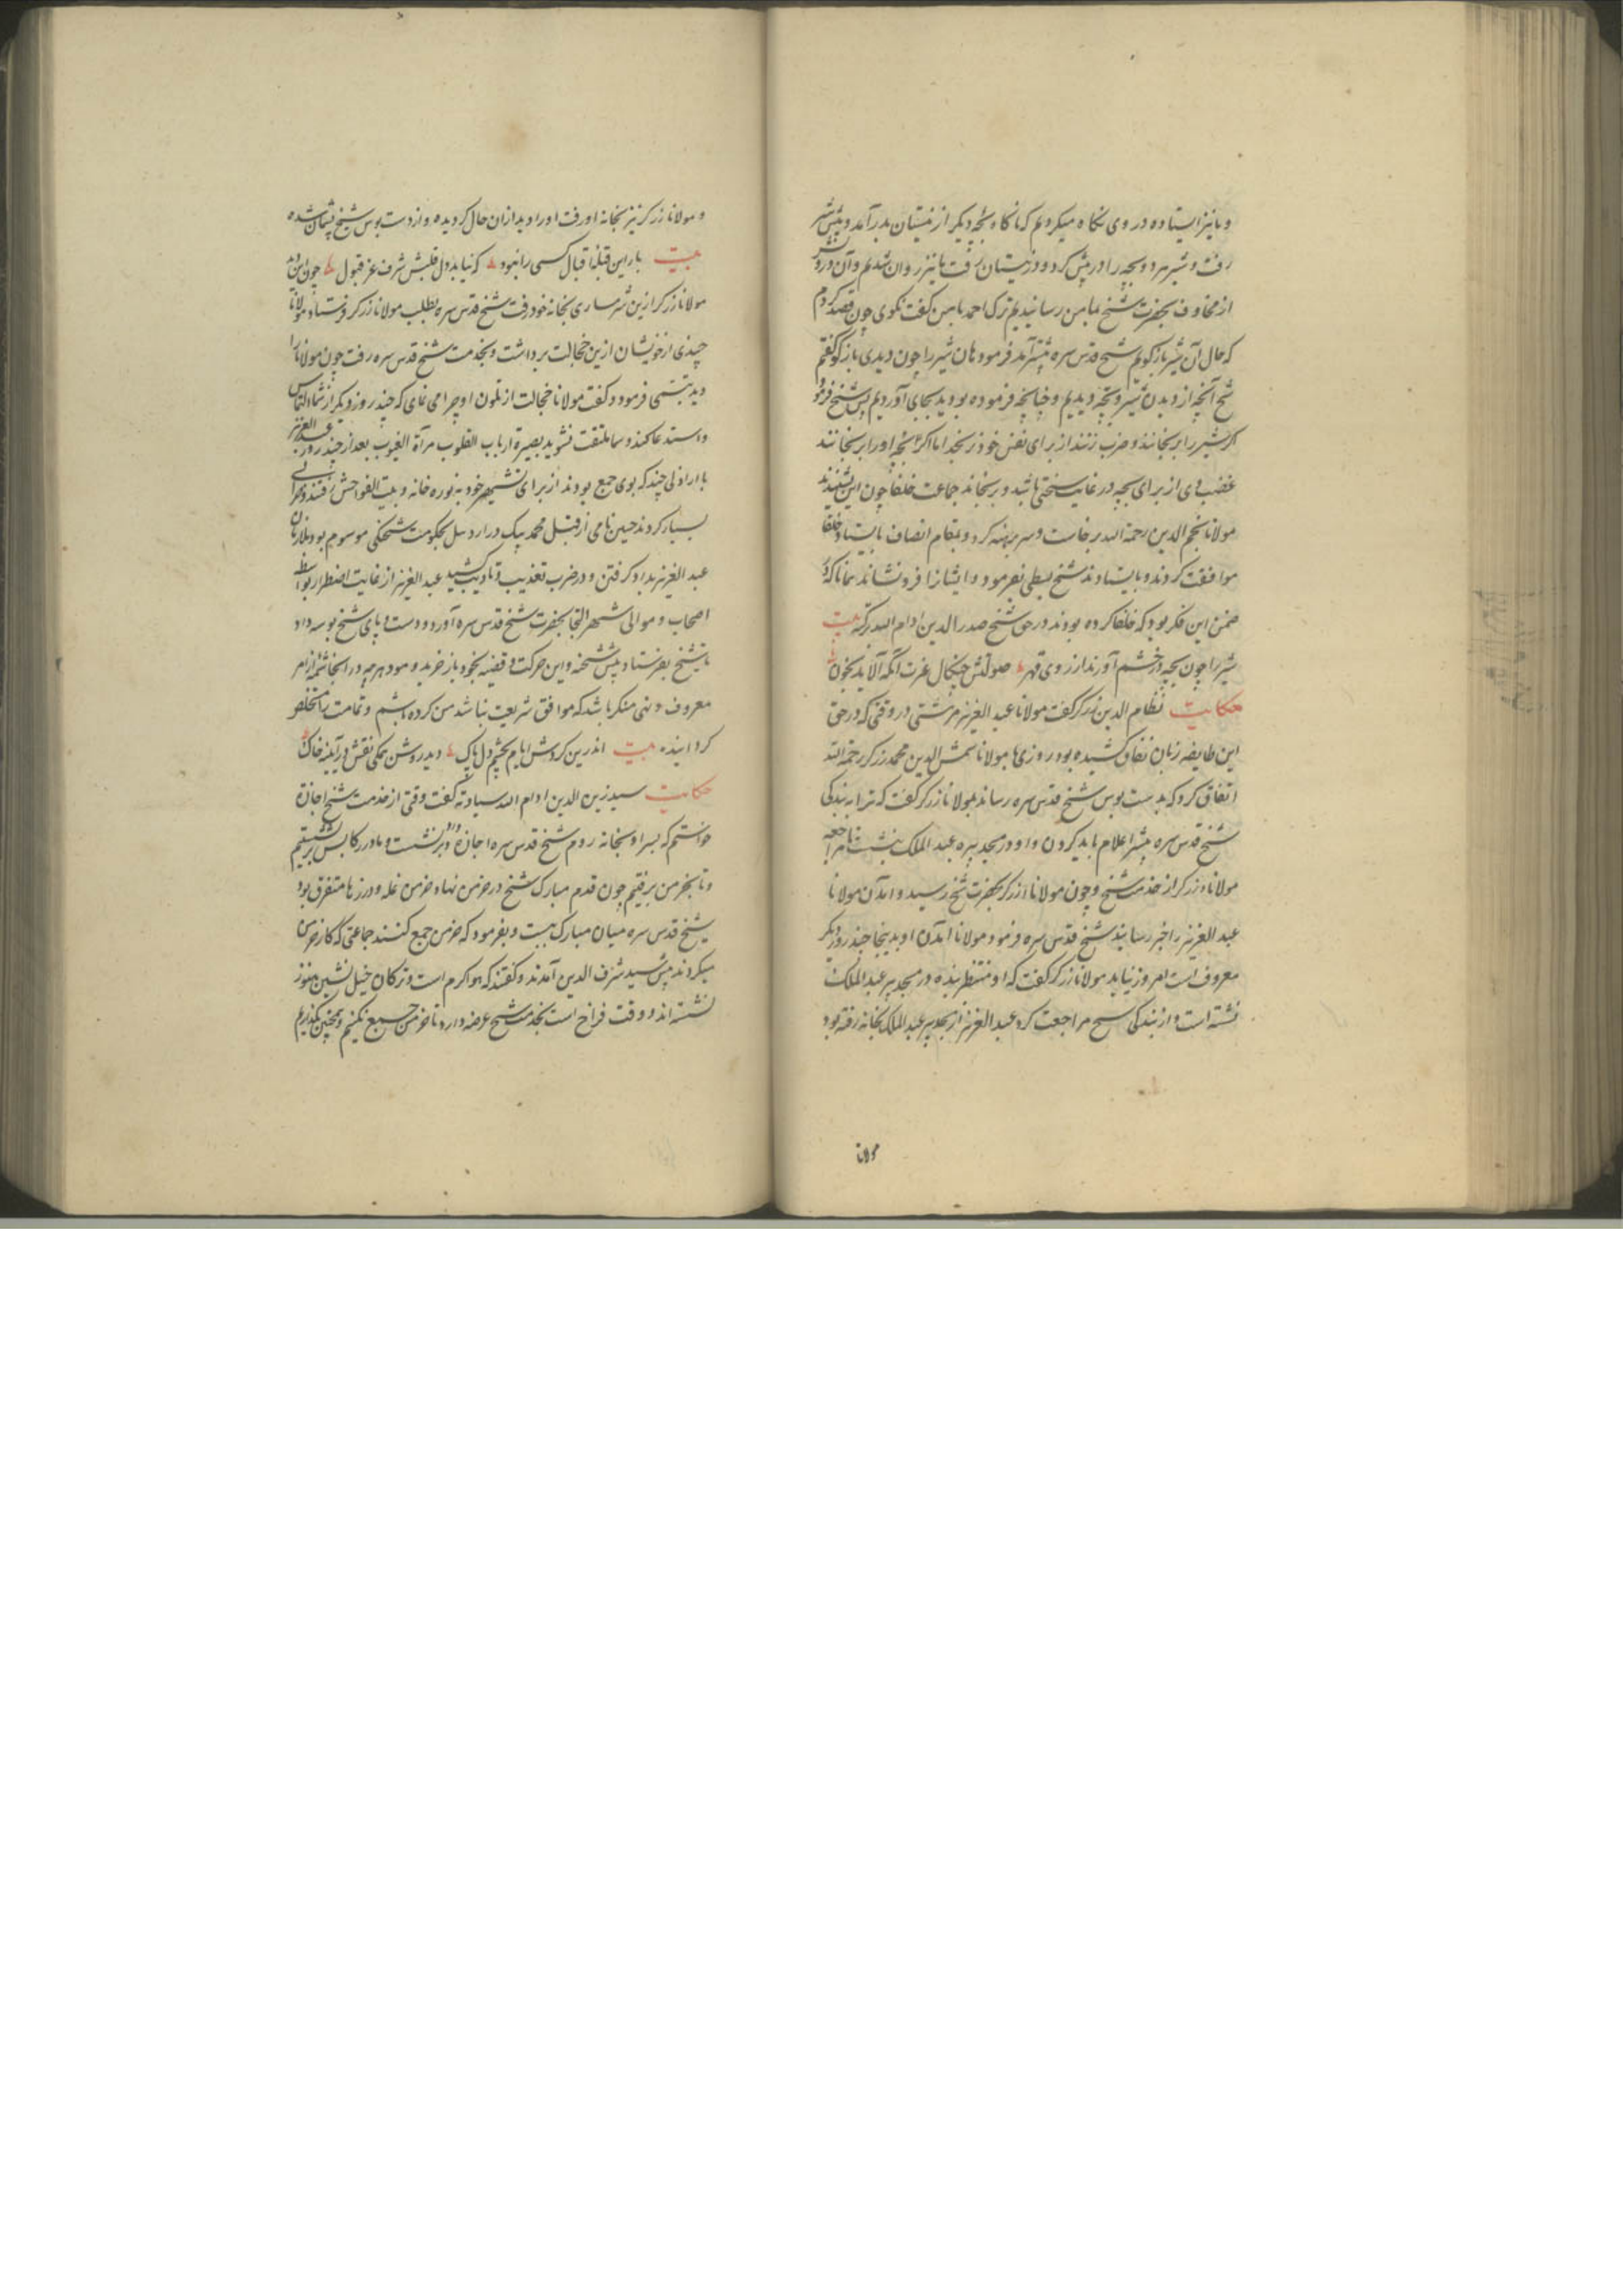 و ما نیز ایستاده در وی نکاه میکردیم که ناکاه بچه دیکر از نیستان بدر آمد و پیش شیر
رفت و شیر هر دو بچه را در پیش کرد و در نیستان رفت ما نیز روان شدیم و آن
از مخاوف بحضرت شیخ مامن رسانیدیم ترک احمد با من کفت نکوی چون قصد کردم
که حال آن شیر باز کویم شیخ قدس سره پیشتر آمد فرمود هان شیر را چون دیدی باز کو کفتم
شیخ آنچه از دیدن شیر و بچه دیدیم و چنانچه فرموده بودید بجای آوردیم پس شیخ فرمود
اکر شیر را برنجانند و ضرب زنند از برای نفس خود نرنجد اما اکر بچه او را برنجانند
غضب وی از برای بچه در غایت سختی باشد و برنجاند جماعت خلفا چون این شنیدند
مولانا نجم الدین رحمة الله برخاست و سر برهنه کرد و بمقام انصاف بایستاد و خلفا
موافقت کردند و بایستادند شیخ بسطی بفرمود و ایشانرا فرو نشاند همانا که در
ضمن این فکر بود که خلفا کرده بودند در حق شیخ صدر الدین ادام الله برکته بیت
شیر را چون بچه در خشم آورند از روی قهر صولتش چنکال غیرت آنکه آلاید بخون
حکایت نظام الدین زرکر کفت مولانا عبد العزیز مرشتی در وقتی که در حق
این طایفه زبان نفاق کشیده بود روزی با مولانا شمس الدین محمد زرکر رحمة الله
اتفاق کرد که بدست بوس شیخ قدس سره رساند مولانا زرکر کفت که ترا به بندکی
شیخ قدس سره پیشتر اعلام باید کردن و او در مسجد پیره عبد الملک بنشست تا مراجعه
مولانا زرکر از خدمت شیخ و چون مولانا زرکر بحضرت شیخ رسید و آمدن مولانا
عبد العزیز را خبر رسانید شیخ قدس سره فرمود مولانا آمدن او بدینجا چند روز دیکر
معروف است امروز نیاید مولانا زرکر کفت که او منتظر بنده در مسجد پیر عبد الملک
نشسته است و از بندکی شیخ مراجعت کرد عبد العزیز از مسجد پیر عبد الملک بخانه رفته بود
مولانا
و مولانا زرکر نیز بخانه او رفت او را دید از آن حال کردیده و از دست بوس شیخ پشیمان شده
بیت بار این قبله اقبال کسی را نبود که نیاید بدل قلبش شرف عز قبول چون این دید
مولانا زرکر ازین شرمساری بخانه خود رفت شیخ قدس سره بطلب مولانا زرکر فرستاد مولانا
چیزی از خویشان ازین خجالت برداشت و بخدمت شیخ قدس سره رفت چون مولانا را
دید تبسمی فرمود و کفت مولانا خجالت از تلون او چرا می نمای که چند روز دیکر از شما التماس
و استدعا کند و شما ملتفت نشوید بصیرة ارباب القلوب مرآة الغیوب بعد از چند روز عبد العزیز
با اراذلی چند که بوی جمع بودند از برای خود به نوره خانه و بیت الفواحش رفتند و خرابی
بسیار کردند حسین نامی از قبل محمد بیک در اردبیل بحکومت شحنکی موسوم بود ملازمان
عبد العزیز بداد کرفتن و در ضرب تعذیب و تادیب کشید عبد العزیز از غایت اضطرار بواسطه
اصحاب و موالی شهر التجا بحضرت شیخ قدس سره آورد و دست و پای شیخ بوسه داد
تا شیخ بفرستاد پیش شحنه و این حرکت و قضیه بخود باز خرید و فرمود هرچه در آنجا از امر
معروف و نهی منکر باشد که موافق شریعت نباشد من کرده باشم و تمامت را مستخلص
کردانید بیت اندرین کردش ایام بچشم دل پاک دید روشن همکی نقش در آینه خاک
حکایت سید زین الدین ادام الله سیادته کفت وقتی از خدمت شیخ اجازة
خواستم که بسراو بخانه روم شیخ قدس سره اجازه داد و برنشست و ما در رکابش برفتیم
و تا بخرمن برفتیم چون قدم مبارک شیخ در خرمن نهاد خرمن غله و درزها متفرق بود
شیخ قدس سره میان مبارک ببست و بفرمود که خرمن جمع کنند جماعتی که کار خرمن
میکردند پیش سید شرف الدین آمدند و کفتند که هوا کرم است و ترکان خیل نشین هنوز
نشسته اند و وقت فراخ است بخدمت شیخ عرضه دارد تا خرمن جمع نکنیم و همچنین بکذاریم